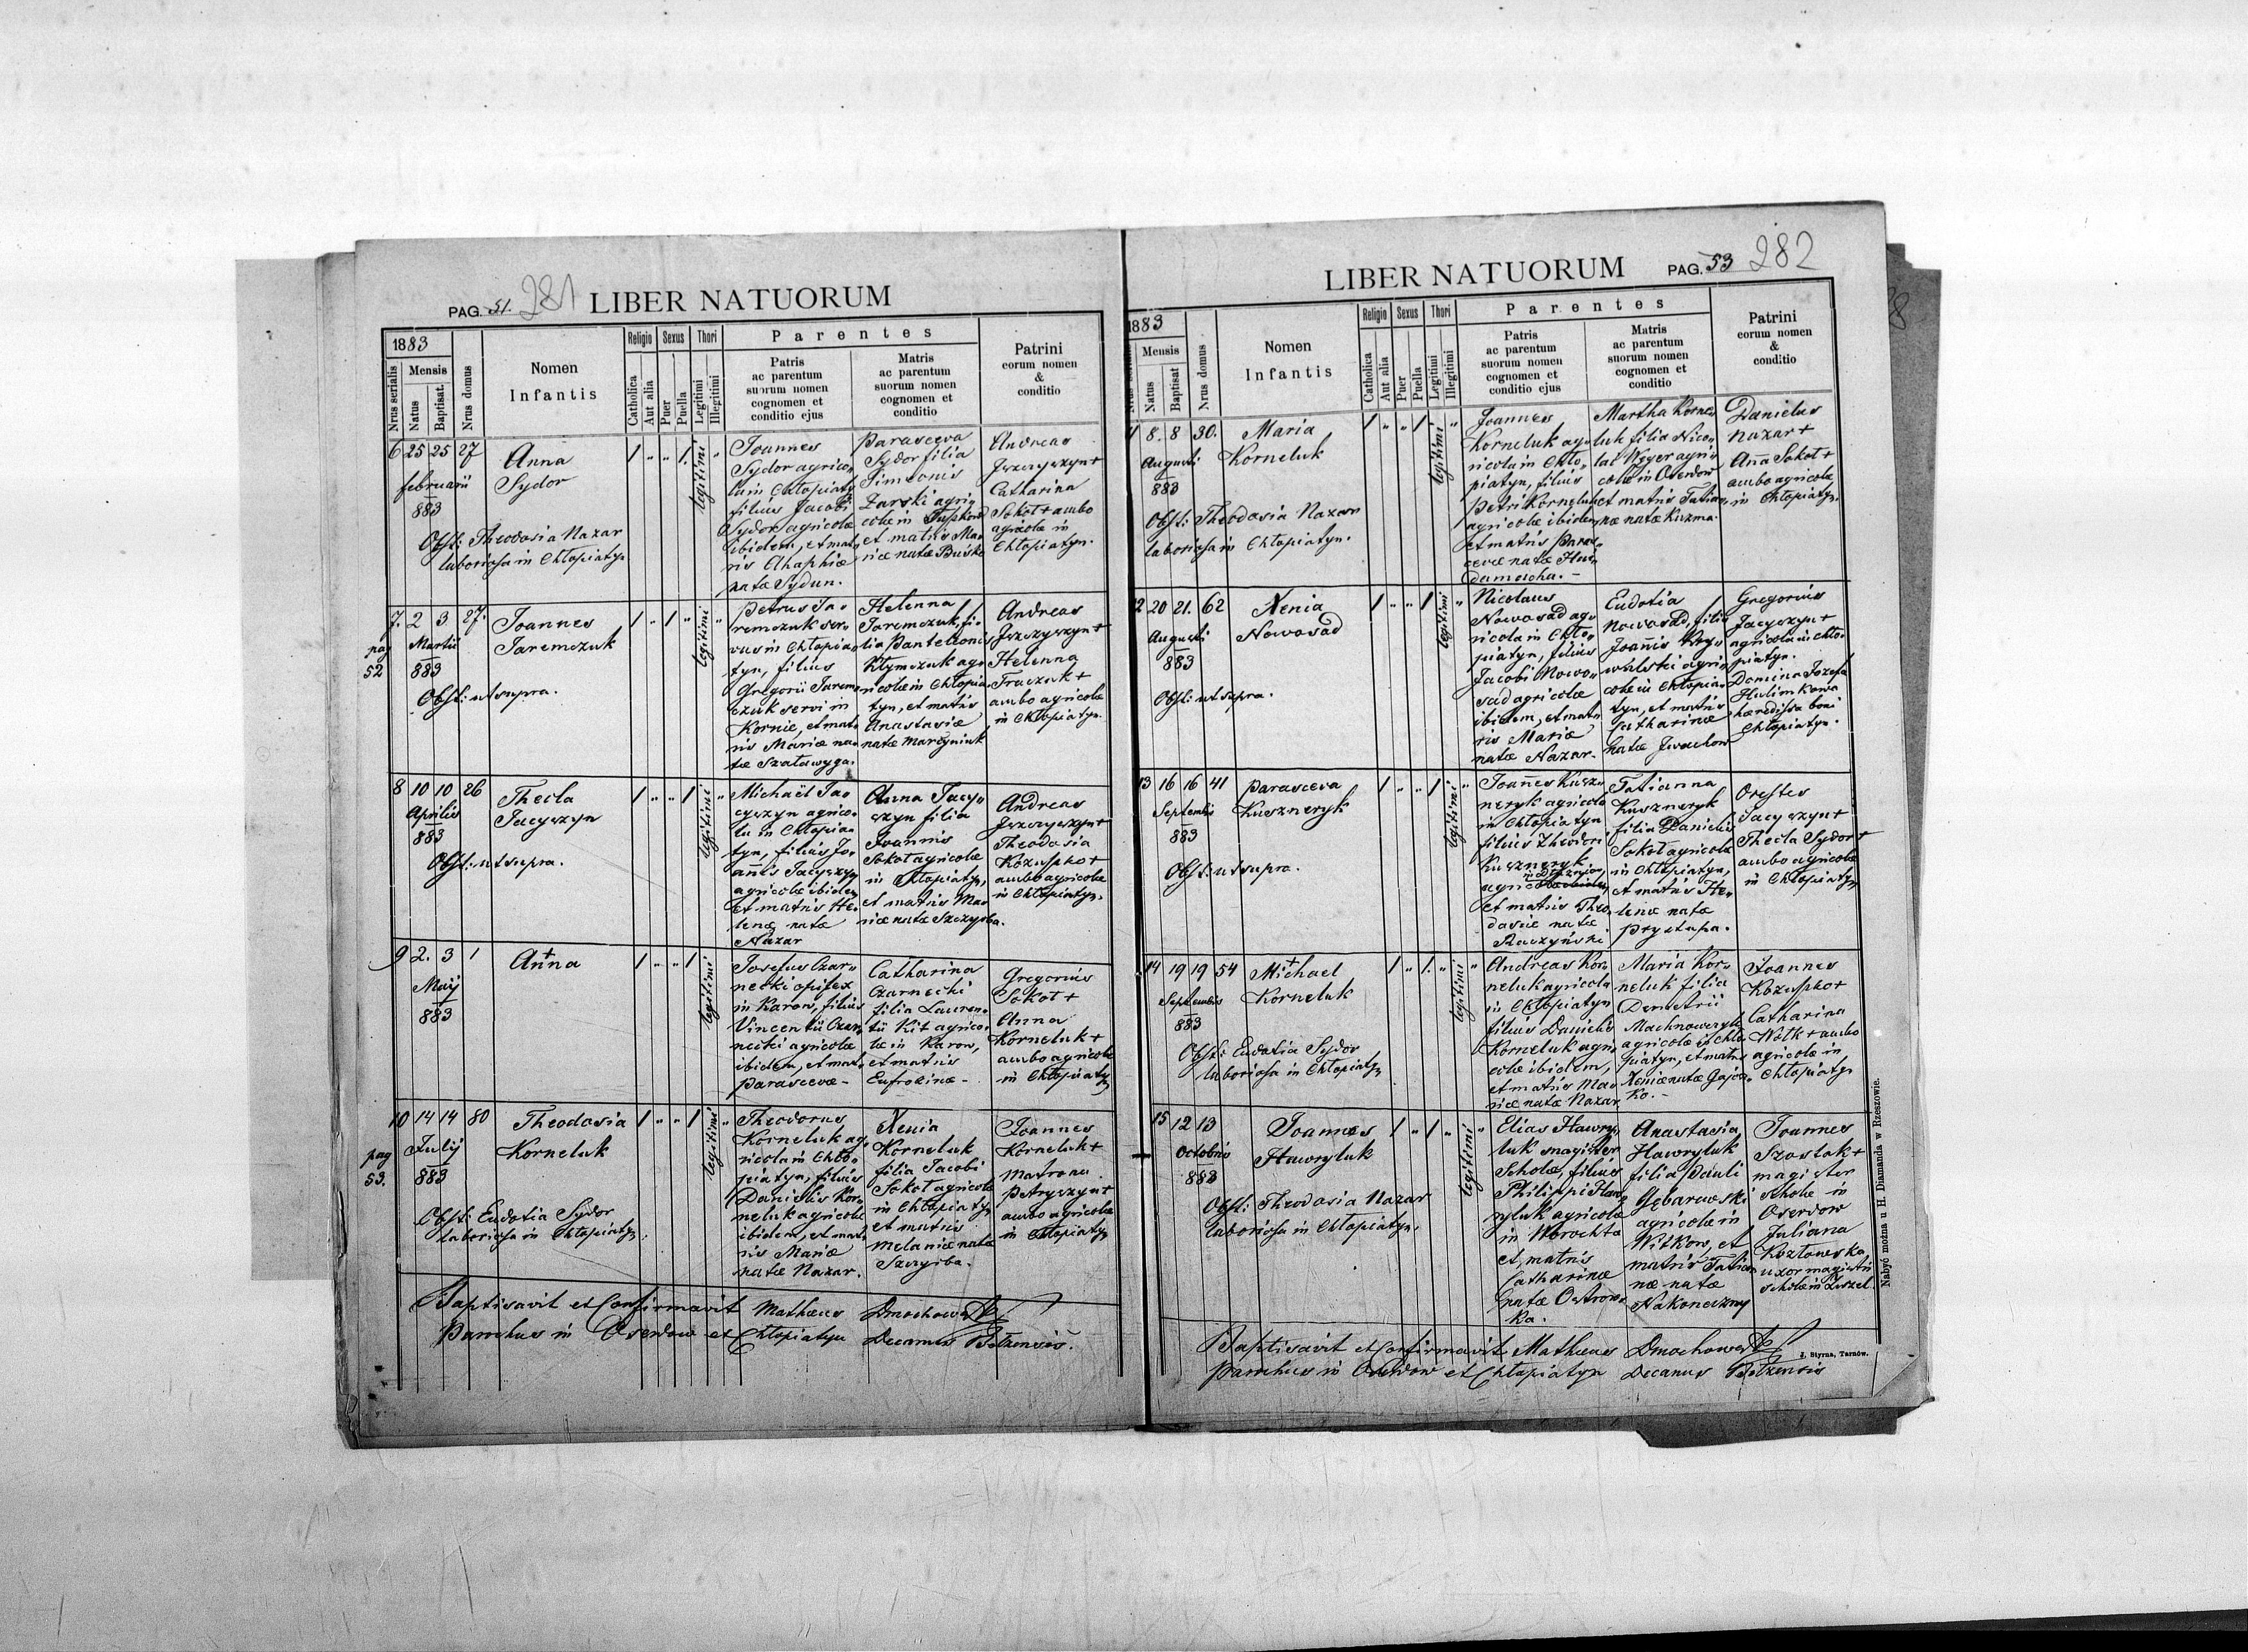 PAG. 51. 281 LIBER NATUORUM
1883
Nrus serialis
Mensis
Natus
Baptisat.
Nrus domus
Nomen
Infantis
Religio
Catholica
Aut alia
Sexus
Puer
Puella
Thori
Legitimi
Illegitimi
Parentes
Patris
ac parentum
suorum nomen
cognomen et
conditio ejus
Matris
ac parentum
suorum nomen
cognomen et
conditio
Patrini
eorum nomen
&
conditio
6 25 25 27
februarii
883
Anna
Sydor
Obst: Theodosia Nazar
laboriosa in Chłopiatyn
legitimi
Joannes
Sydor agrico-
la in Chłopiatyn
filius Jacobi
Sydor agricolæ
ibidem, et mat-
ris Ahaphiæ
natæ Sydun.
Parasceva
Sydor filia
Simeonis
Żarski agri-
colæ in
et matris Ma-
riæ natæ
Andreas
Jszczyszyn +
Catharina
Sokoł + ambo
agricolæ in
Chłopiatyn.
7. 2 3 27.
pag
52
Martii
883
Joannes
Jaremczuk
Obst: ut supra.
legitimi
Petrus Ja-
remczuk ser-
vus in Chłopia-
tyn, filius
Gregorii Jarem-
czuk servi in
Kornie, et mat-
ris Mariæ na-
tæ Szaławyga.
Helenna
Jaremczuk, fi-
lia Panteleonis
Kłymczuk ag-
ricolæ in Chłopia-
tyn, et matris
Anastasiæ
natæ Marcyniuk
Andreas
Jszczyszyn +
Helenna
Traczuk +
ambo agricolæ
in Chłopiatyn.
8 10 10 26
Aprilis
883
Thecla
Jacyszyn
Obst: ut supra.
legitimi
Michaël Ja-
cyszyn agrico-
la in Chłopia-
tyn, filius Jo-
anis Jacyszyn
agricolæ ibidem
et matris He-
lenæ natæ
Nazar
Anna Jacy-
szyn filia
Joannis
Sokoł agricolæ
in Chłopiatyn,
et matris Ma-
riæ natæ Szczyrba.
Andreas
Jszczyszyn +
Theodosia
Kozuszko +
ambo agricolæ
in Chłopiatyn.
9 2. 3 1
Maij
883
+
Anna
legitimi
Josefus Czar-
necki opifex
in Karow, filius
Vincentii Czar-
necki agricolæ
ibidem, et mat.
Parascevæ -
Catharina
Czarnecki
filia Lauren-
tii Kit agrico-
læ in Karow,
et matris
Eufrosinæ -
Gregorius
Sokoł +
Anna
Korneluk +
ambo agricolæ
in Chłopiatyn
10 14 14 80
pag
53.
Julij
883
Theodosia
Korneluk
Obst: Eudotia Sydor
laboriosa in Chłopiatyn.
legitimi
Theodorus
Korneluk ag-
ricola in Chło-
piatyn, filius
Danielis Kor-
neluk agricolæ
ibidem, et mat-
ris Mariæ
natæ Nazar.
Xenia
Korneluk
filia Jacobi
Sokoł agricolæ
in Chłopiatyn
et matris
Melaniæ natæ
Szczyrba.
Joannes
Korneluk +
Matrona
Petryszyn +
ambo agricolæ
in Chłopiatyn
Baptisavit et Confirmavit Mathæus
Parochus in Oserdow et Chłopiatyn Decanus Bełzensis.
LIBER NATUORUM PAG. 53 282
1883
Mensis
Natus
Baptisat
Nrus domus
Nomen
Infantis
Religio
Catholica
Aut alia
Sexus
Puer
Puella
Thori
Legitimi
Illegitimi
Parentes
Patris
ac parentum
suorum nomen
cognomen et
conditio ejus
Matris
ac parentum
suorum nomen
cognomen et
conditio
Patrini
eorum nomen
&
conditio
8. 8 30.
Augusti
883
Maria
Korneluk
Obst: Theodosia Nazar
laboriosa in Chłopiatyn.
legitimi
Joannes
Korneluk ag-
ricola in Chło-
piatyn, filius
Petri Korneluk
agricolæ ibidem
et matris Paras-
cevæ natæ Hai-
damacha. -
Martha Korne-
luk filia Nico-
lai Węger agri-
colæ in Oserdow
et matris Tatian-
næ natæ Kuzma.
Danielus
Nazar +
Anna Sokoł +
ambo agricolæ
in Chłopiatyn.
12 20 21. 62
Augusti
883
Xenia
Nowosad
Obst: ut supra.
legitimi
Nicolaus
Nowosad ag-
ricola in Chło-
piatyn, filius
Jacobi Nowo-
sad agricolæ
ibidem, et mat-
ris Mariæ
natæ Nazar.
Eudotia
Nowosad, filia
Joanis
agri-
colæ in Chłopia-
tyn, et matris
Catharinæ
natæ Jwachow
Gregorius
Jacyszyn +
agricola in Chło-
piatyn.
Domina Josepha
Hulimkowa
hæredissa boni
Chłopiatyn.
13 16 16 41
Septembris
883
Parasceva
Kuszneryk
Obst: ut supra.
legitimi
Joanes Kusz-
neryk agricola
in Chłopiatyn
filius Theodori
Kuszneryk
agricolæ ibidem,
et matris Theo-
dosiæ natæ
Raczyński.
Tatianna
Kuszneryk
filia Danielis
Sokoł agricolæ
in Chłopiatyn,
et matris He-
lenæ natæ
Prystupa.
Orestes
Jacyszyn +
Thecla Sydor +
ambo agricolæ
in Chłopiatyn
14 19 19 54
Septembris
883
+
Michael
Korneluk
Obst: Eudotia Sydor
laboriosa in Chłopiatyn
legitimi
Andreas Kor-
neluk agricola
in Chłopiatyn
filius Danielis
Korneluk agri-
colæ ibidem,
et matris Ma-
riæ natæ Nazar
Maria Kor-
neluk filia
Demetrii
Machnoweryk
agricolæ in Chło-
piatyn, et matris
Xeniæ natæ
Joannes
Kozuszko +
Catharina
Wołk + ambo
agricolæ in
Chłopiatyn
15 12 13
Octobris
883
Joannes
Hawryluk
Obst: Theodosia Nazar
laboriosa in Chłopiatyn.
legitimi
Elias Hawry-
luk magister
Scholæ, filius
Philippi Haw-
ryluk agricolæ
in Worochta
et matris
Catharinæ
natæ Ostrow-
ka.
Anastasia
Hawryluk
filia Pauli
Gębarowski
agricolæ in
Witkow, et
matris Tatian-
næ natæ
Nakoneczny
Joannes
Szostak +
magister
scholæ in
Oserdow
Juliana
Kozłowska,
uxor magistri
scholæ in
Baptisavit et Confirmavit Mathæus
Parochus in Oserdow et Chłopiatyn Decanus Bełzensis
J. Styrna, Tarnów.
Nabyć można u H. Diamanda w Rzeszowie.